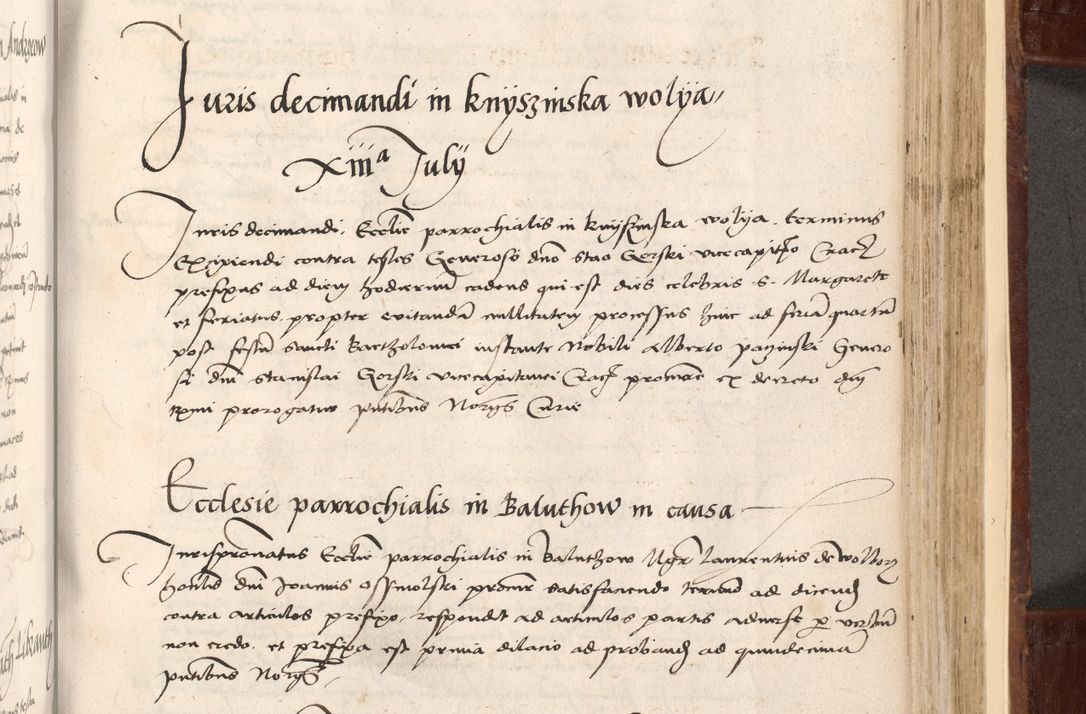 Juris decimandi in knyszinska wolya
xiiia July
Juris decimandi Ecclie parrochialis in knyszynska wolya terminus
Excipiendi contra testes Generosi dno Stao Gorski vicecapitō Crac
prefixus ad diem hodiernū cadens qui est dies celebris S. Margarete
et feriatus propter evitandā nullitatem processus huic ad feriā quartā
post festū Sancti Bartholomei instante Nobili Alberto paczinski Genero
si dni Stanislai Gorski vicecapitanei Crac procure ex decreto dni
prorogatur pntibus Noriis Curie
Ecclesie parrochialis in Baluthow in causa
Jurispronatus Ecclie parrochialis in Baluthow Mgr Laurentius de
dni Joannis procur satisfaciendo termino ad dicend
contra articulos prefixo respondit ad articulos partis adverse per verbum
non credo et prefixa est prima dilacio ad proband ad quindenam
pntibus Noriis